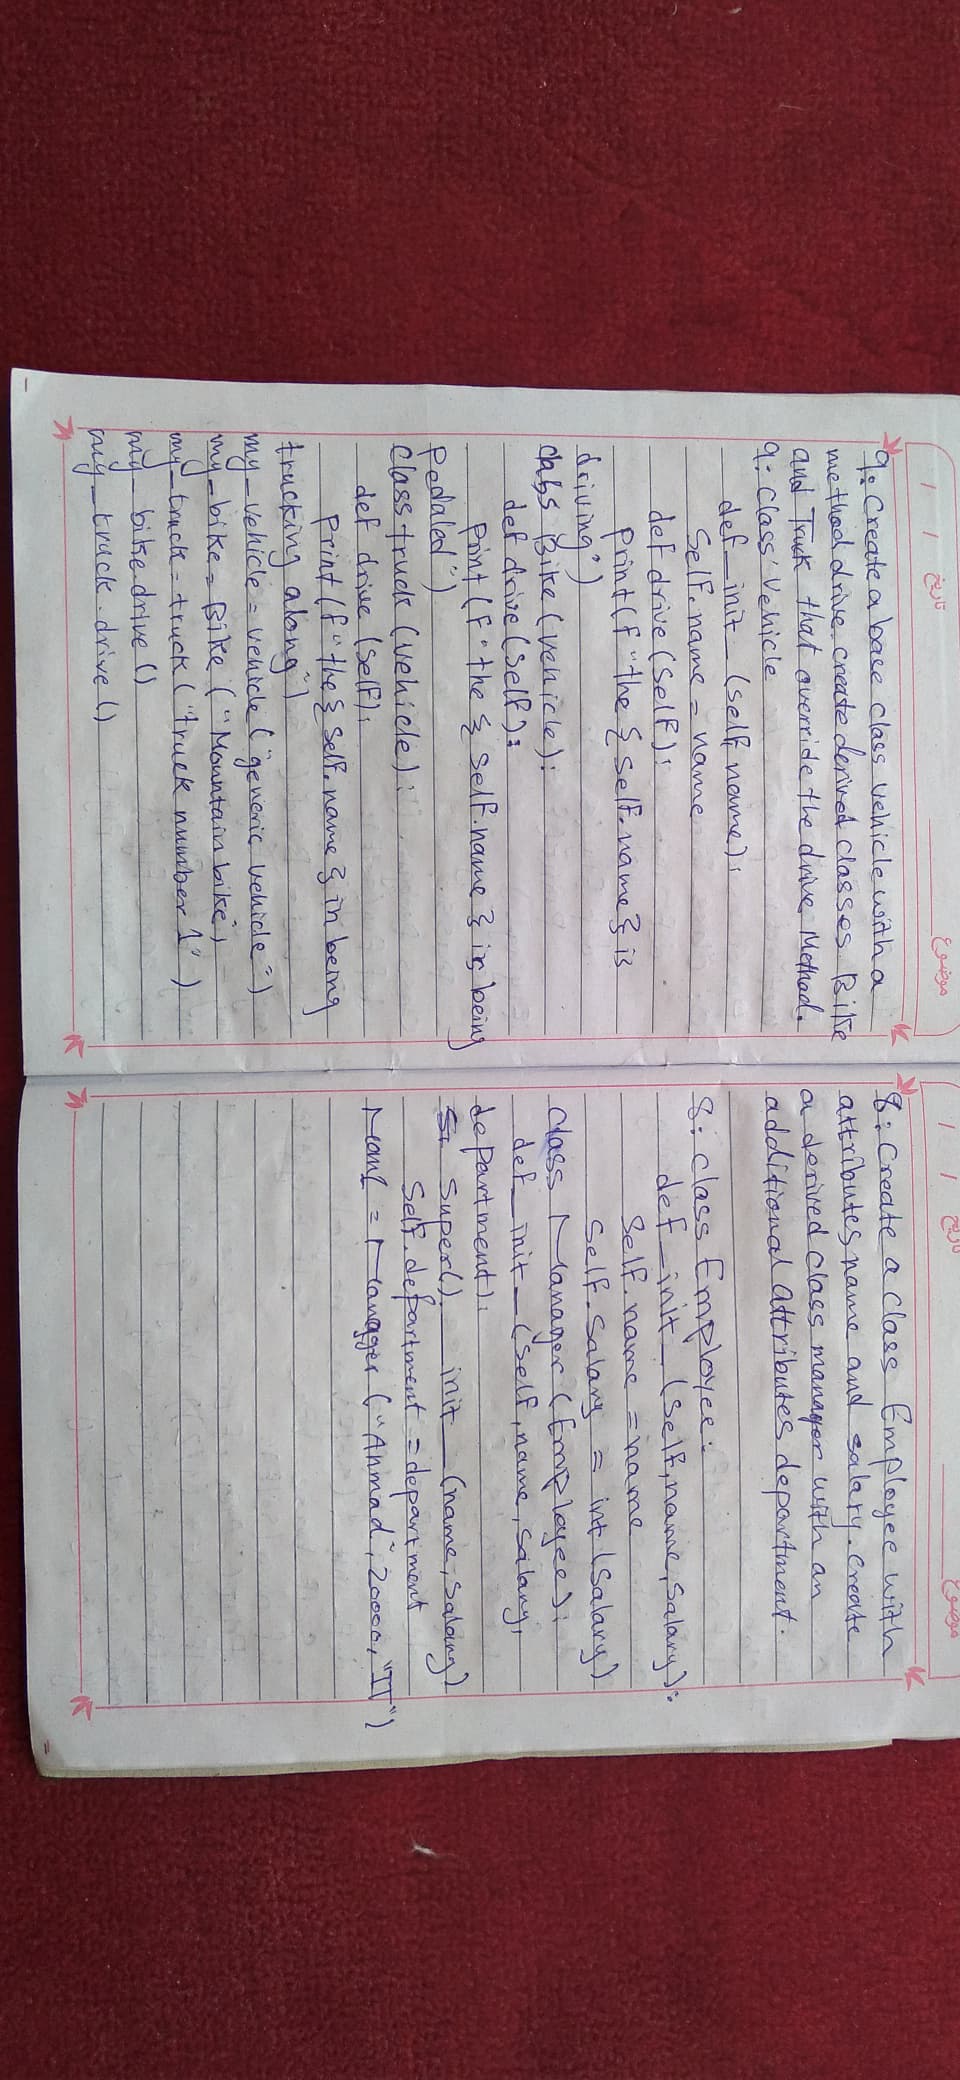 تاریخ / /
موضوع
9: Create a base class vehicle with a
method drive. create derived classes Bike
and Truck that override the drive Method.
9: Class Vehicle
def_init_(self, name):
Self.name = name
def drive (Self):
Print (f "the { self.name } is
driving")
class Bike (vehicle):
def drive (self):
print (f "the { self.name } is being
Pedaled")
Class truck (vehicle):
def drive (self):
Print (f "the { self.name } in being
trucking along")
my_vehicle = vehicle ("generic vehicle")
my_bike = Bike ("Mountain bike")
my_truck = truck ("truck number 1")
my_bike.drive ()
my_truck.drive ()
تاریخ / /
موضوع
8: Create a class Employee with
attributes name and salary. create
a derived class manager with an
additional attributes department.
8: class Employee:
def_init_(self, name, salary):
Self.name = name
Self.salary = int (Salary)
Class Manager (Employee):
def_init_(self, name, salary,
department):
super().__init__(name, salary)
Self.department = department
Man1 = Manager ("Ahmad", 20000, "IT")